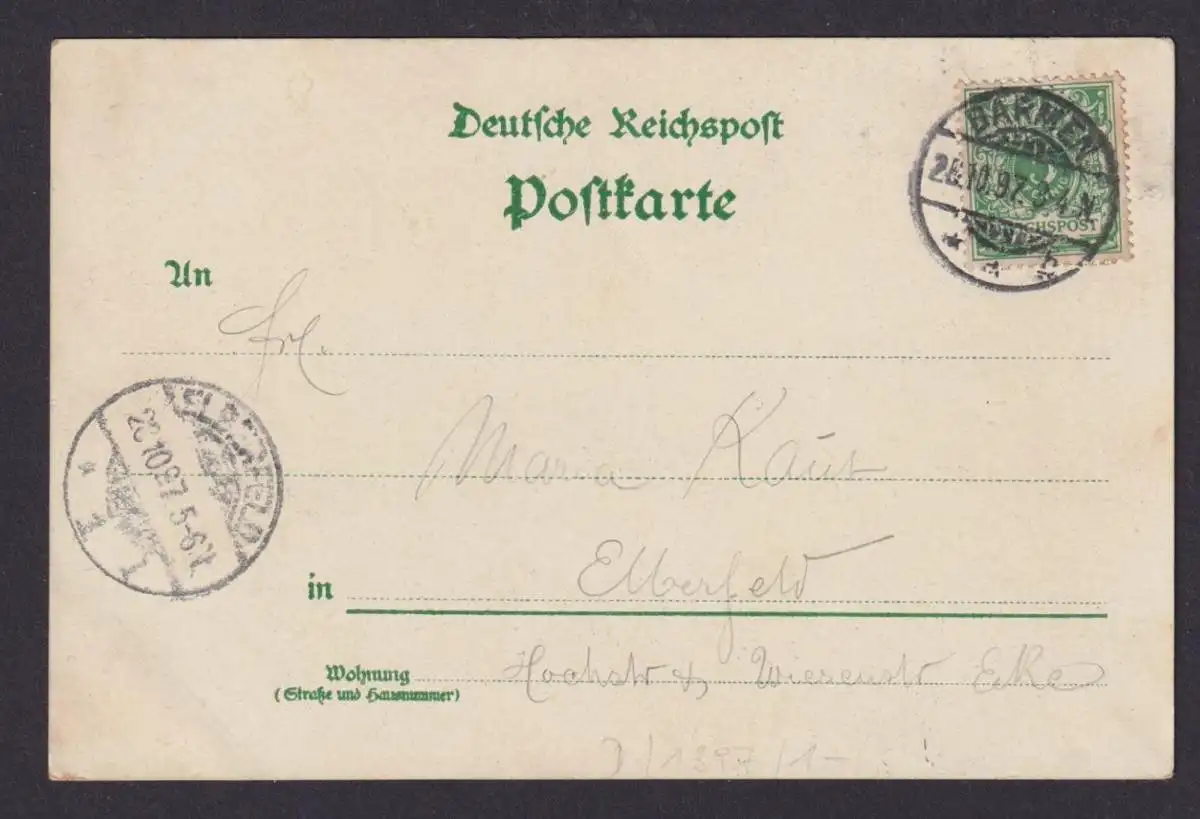 Deutsche Reichspost
Postkarte
BARMEN
26.10.97. 3-4.N.
REICHSPOST
An
Frl.
Maria Kaut
ELBERFELD
26 10 97 5-6N.
1
in Elberfeld
Wohnung Hochstr & Wiesenstr Eke
(Straße und Hausnummer)